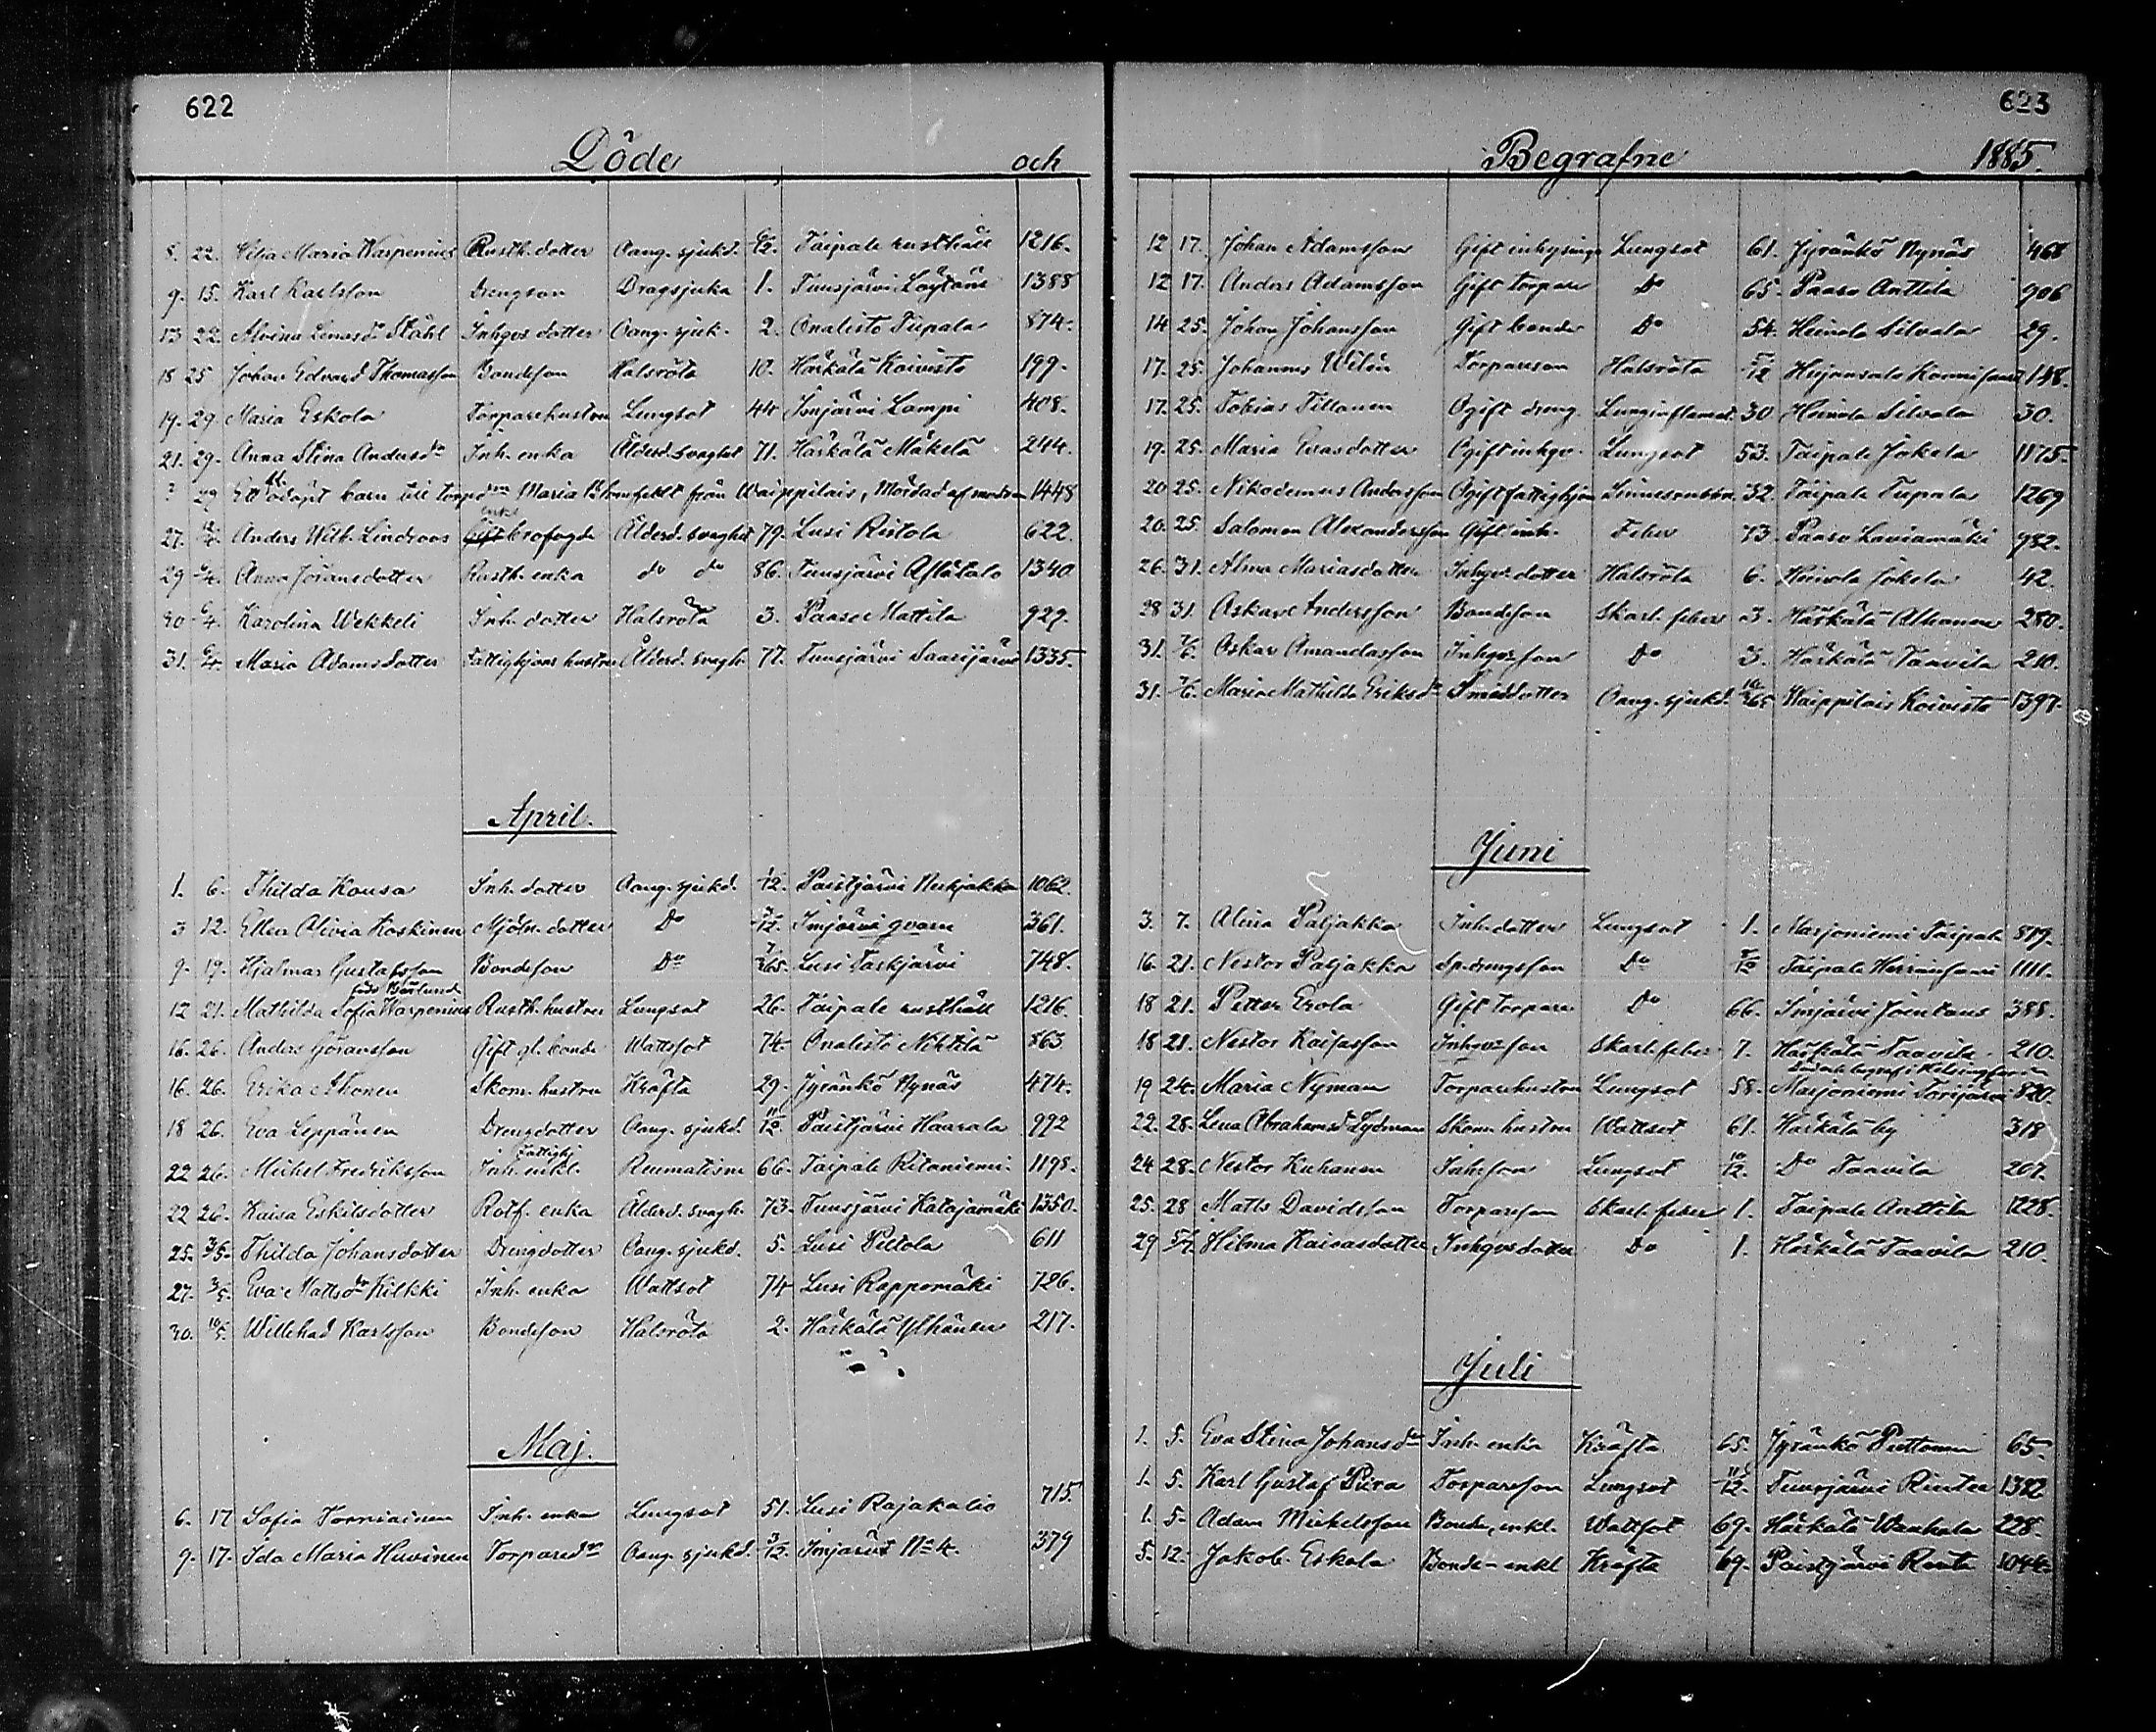 622
Döde och
8. 22. Maria Warpenius Rusth. dotter Oang. sjukd. 6/12. Taipale rusthåll 1216.
9. 15. Karl Karlsson Drengson Dragsjuka 1. Tuusjärvi Löytänä 1388
13 22. Alvina Lenasd:r Ståhl Inhqvs dotter Oang. sjuk. 2. Onalisto Tupala 874.
18 25 Johan Edvard Thomasson Bondeson Halsröta 10. Härkälä Koivisto 199.
19. 29. Maria Eskola Torparehustru Lungsot 44 Imjärvi Lampi 408.
21. 29. Anna Stina Andersd:r Inh. enka Ålderd. svaghet 71. Härkälä Mäkelä 244.
? 29 Ett odöpt barn till torpd:rn Maria från Waippilais, Mördad af modren 1448
27. Anders Wilh. Lindroos enkl. krofogde Ålderd. svaghet 79. Lusi Ristola 622.
29 6/4. Anna Göransdotter Rusth. enka d:o d:o 86. Tuusjärvi Aflätalo 1340
30 6/4. Karolina Wekkeli Inh. dotter Halsröta 3. Paaso Mattila 929.
31. 6/4. Maria Adamsdotter Fattighjons hustru Ålderd. svagh. 77. Tuusjärvi Saarijärvi 1335.
April.
1. 6. Thilda Kousa Inh. dotter Oang. sjukd. /12. Paistjärvi Neckjakka 1062.
3 12. Ellen Olivia Koskinen Mjöln. dotter D:o 3/12. Imjärvi qvarn 361.
9. 19. Hjalmar Gustafsson Bondeson D:o 7/365. Lusi Taskjärvi 748.
född Barlund
12 21. Mathilda Sofia Warpenius Rusth. hustru Lungsot 26. Taipale rusthåll 1216.
16. 26. Anders Göransson Gift gl. bonde Wattsot 74. Onalisto Nihtilä 863
16. 26. Erika Ahonen Skom. hustru Kräfta 29. Jyränkö Nynäs 474.
18 26. Eva Leppänen Drengdotter Oang. sjukd. 11/12. Paistjärvi Haarala 992
22 26. Mickel Fredriksson Inh. enkl. fattighj Reumatism 66. Taipale Ritaniemi 1198.
22 26. Kaisa Eskilsdotter Rotf. enka Ålderd. svagh. 73. Tuusjärvi Katajamäki 1350.
25. 3/5. Thilda Johansdotter Drengdotter Oang. sjukd. 5. Lusi Peltola 611
27. 3/5. Eva Mattsd:r Kilkki Inh. enka Wattsot 74 Lusi Rappumäki 726.
30. 10/5. Willehad Karlsson Bondeson Halsröta 2. Härkälä Ylhänen 217.
Maj.
6. 17 Sofia Torniainen Inh. enka Lungsot 51. Lusi Rajakalio 715.
9. 17. Ida Maria Huvinen Torpared:r Oang. sjukd. 3/12. Imjärvi N:o 4. 379
623
Begrafne 1885.
12 17. Johan Adamsson Gift inhysing Lungsot 61. Jyränkö Nynäs 468
12 17. Anders Adamsson Gift torpare D:o 65. Paaso Anttila 906
14 25. Johan Johansson Gift bonde D:o 54. Heinola Silvala 29.
17. 25. Johannes Wilén Torpareson Halsröta 5/12 Hujansalo 148.
17. 25. Tobias Tillanen Ogift dreng. Lunginflamat. 30 Heinola Silvala 30.
19. 25. Maria Evasdotter Ogift inhqv. Lungsot 53. Taipale Jokela 1175.
20 25. Nikodemus Andersson Ogift fattighjon 32. Taipale Tupala 1269
20. 25. Salomon Alexandersson Gift inh. Feber 73. Paaso Laviamäki 982.
26. 31. Alma Mariasdotter Inhqvs dotter Halsröta 6. Heinola Jokela 42.
28 31. Oskar Andersson Bondeson Skarl. feber 3. Härkälä Alhanen 280.
31. 7/6. Oskar Amandasson Inhqvs son D:o 3. Härkälä Taavila 210.
31. 7/6. Maria Mathilda Eriksd:r Smeddotter Oang. sjukd. 10/365 Waippilais Koivisto 1397.
Juni
3. 7. Alina Paljakka Inh. dotter Lungsot 1. Marjoniemi Taipale 819.
16. 21. Nestor Paljakka Sp. drengsson D:o 8/12 Taipale 1111.
18 21. Petter Erola Gift torpare D:o 66. Imjärvi Joentaus 388.
18 21. Nestor Kaisasson Inhqvs son Skarl. feber 7. Härkälä Taavila 210.
19 24. Maria Nyman Torparehustru Lungsot 58. Marjoniemi Torijärvi 820.
22. 28. Lena Abrahamsd. Lydman Skom. hustru Wattsot 61. Härkälä by 318
24 28. Nestor Kuhanen Inh. son Lungsot 10/12. D:o Taavila 207.
25. 28 Matts Davidsson Torpareson Skarl. feber 1. Taipale Anttila 1228.
29 5/7. Hilma Kaisasdotter Inhqvs dotter D:o 1. Härkälä Taavila 210.
Juli
1. 5. Eva Stina Johansd:r Inh. enka Kräfta 65. Jyränkö Puttonen 65.
1. 5. Karl Gustaf Pura Torpareson Lungsot 11/12. Tuusjärvi Rintee 1382
1. 5. Adam Mickelsson Bonde, enkl. Wattsot 69. Härkälä Wanhala 228.
5. 12. Jakob Eskola Bonde-enkl Kräfta 69. Paistjärvi Ranta 1044.